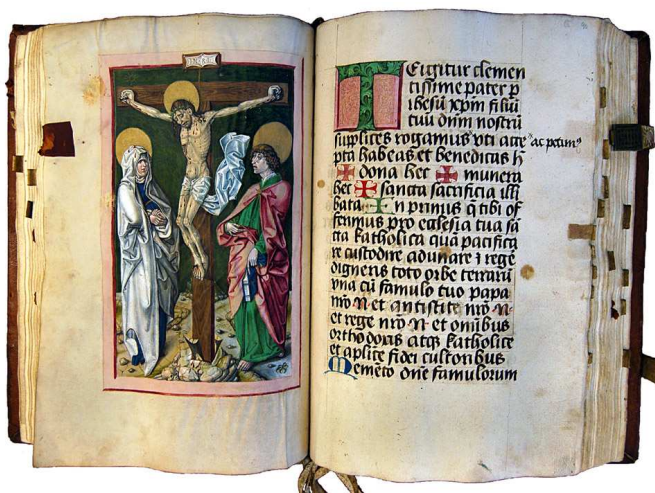 INRI
TE igitur clemen
tissime pater p
ihesū xpm filiū
tuū dnm nostrū
supplices rogamus vti acce "ac petim9
pta habeas et benedicas h
dona hec munera
hec sancta sacrificia illi
bata In primis q tibi of
ferimus pro ecclesia tua sā
cta katholica quā pacifica
re custodire adunare ⁊ rege
digneris toto orbe terrarū
vna cū famulo tuo papa
nro N et antistite nro N
et rege nro N et omibus
orthodoxis atq katholice
et aplice fidei cultoribus
Memeto dne famulorum